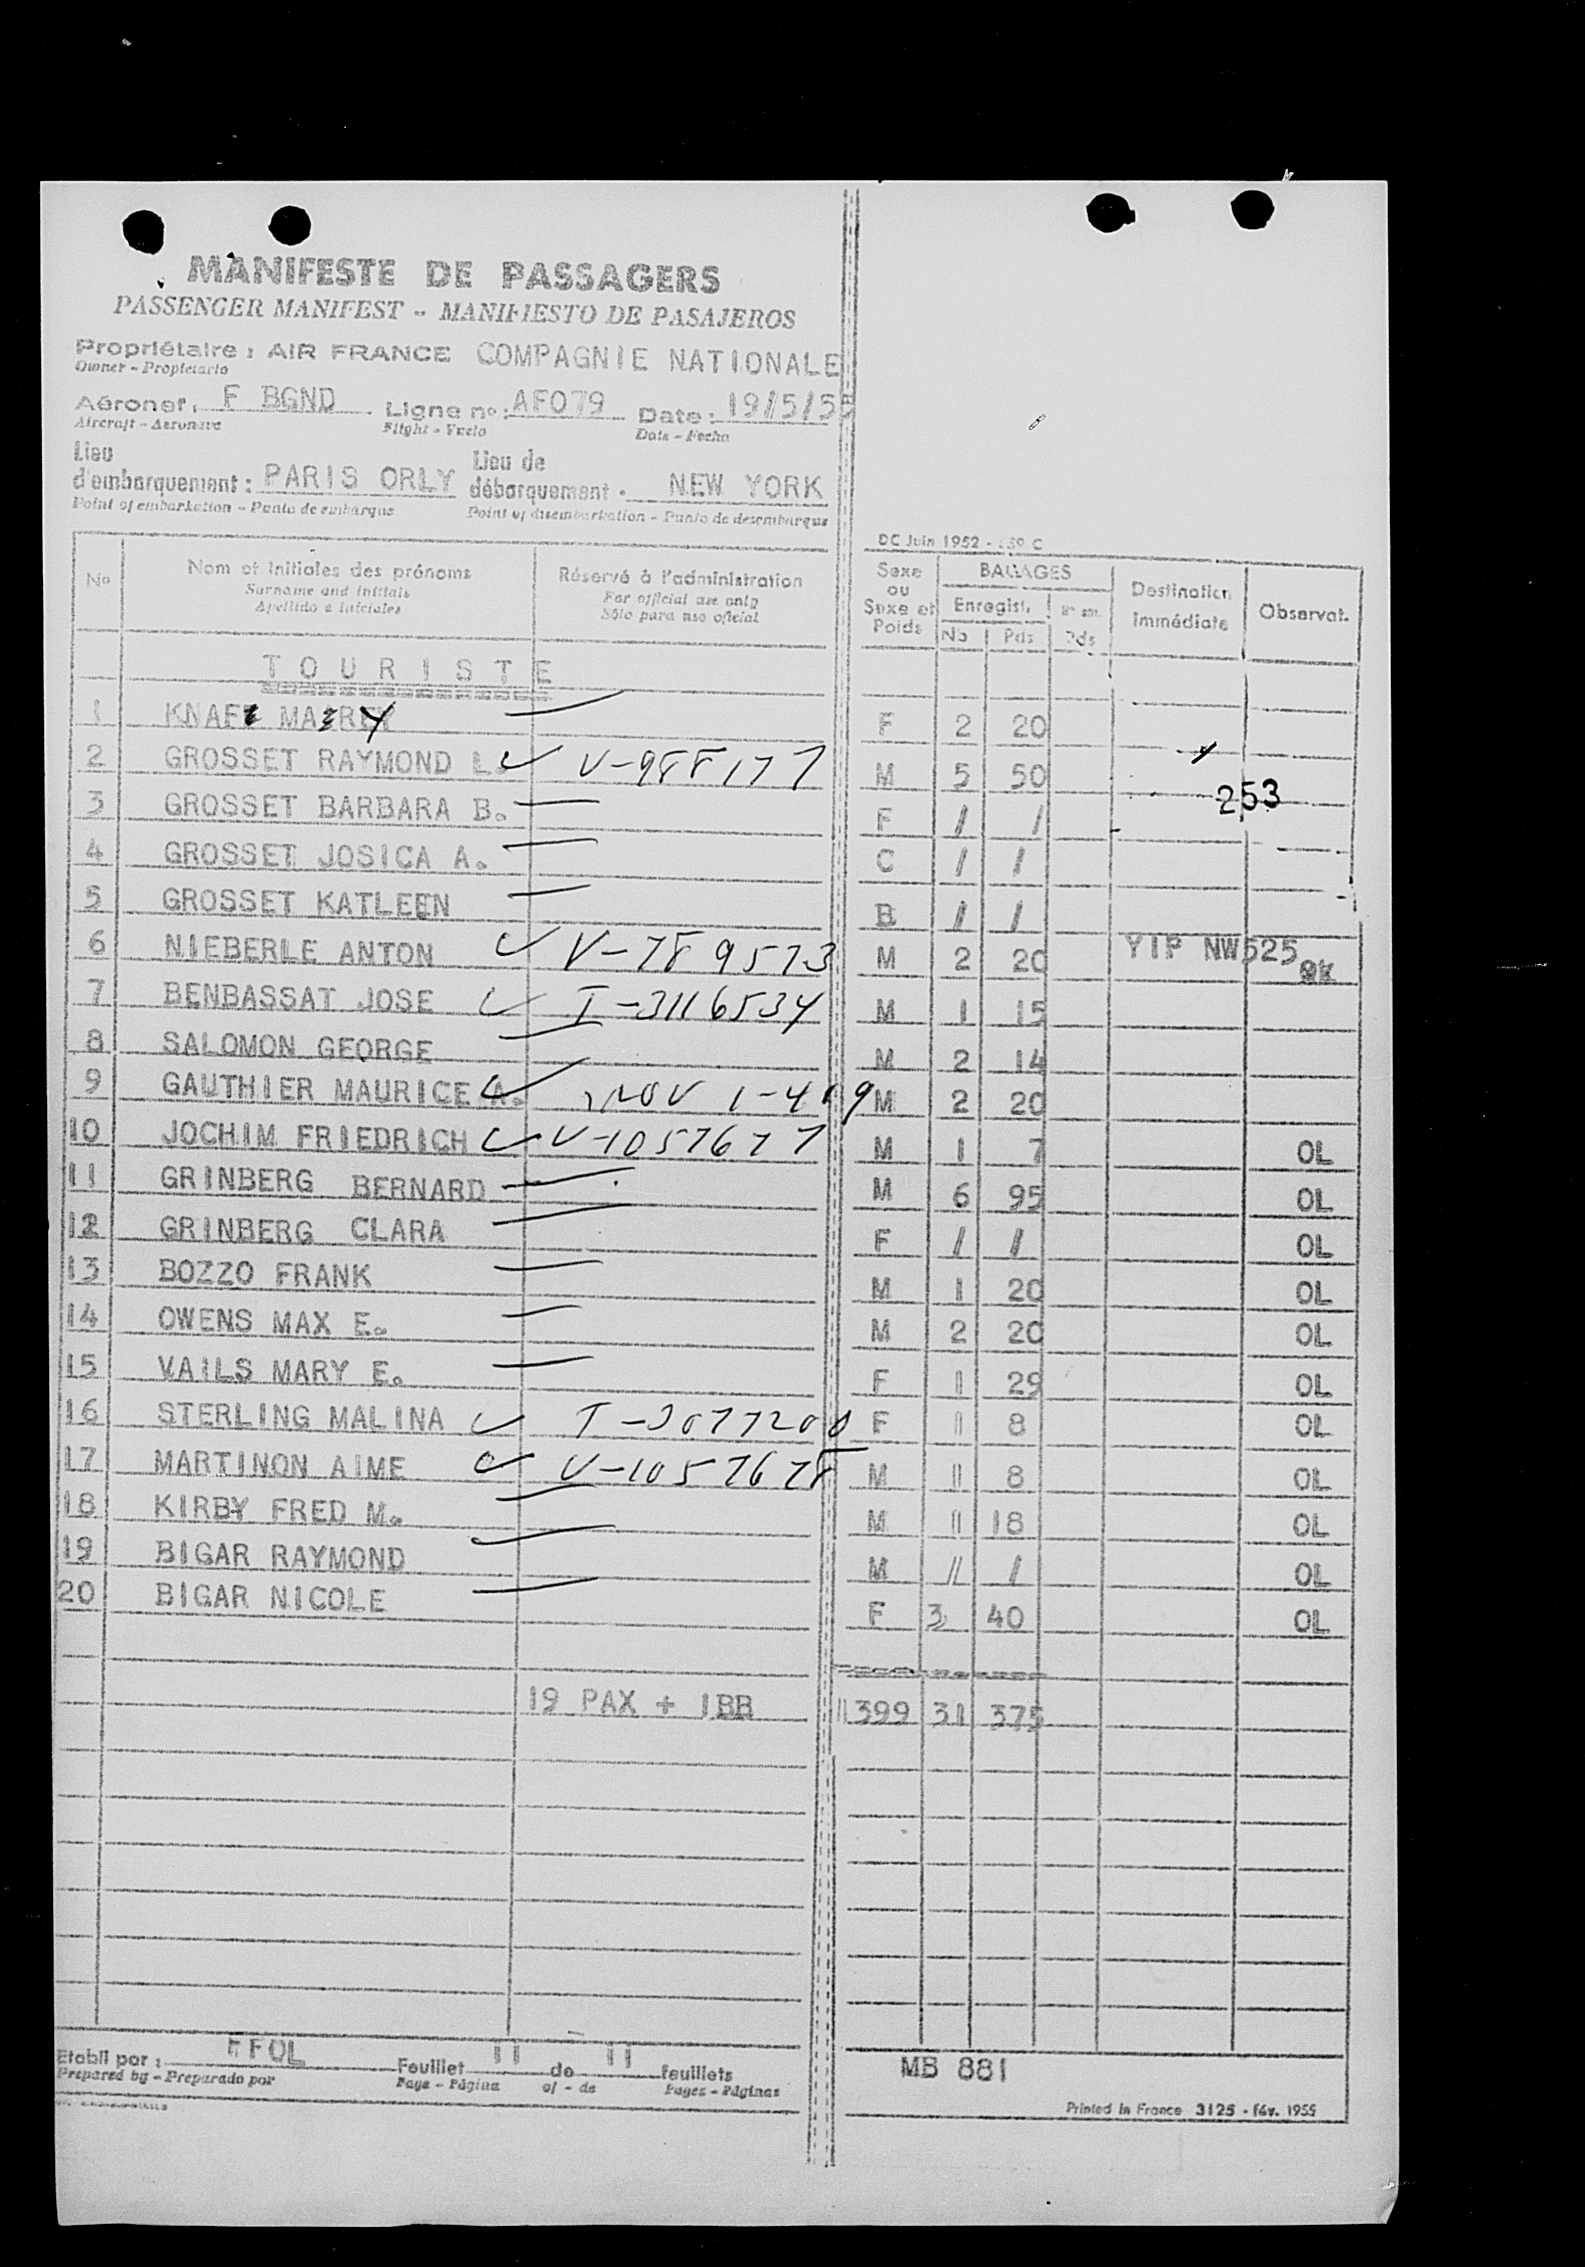 MANIFESTE DE PASSAGERS
PASSENGER MANIFEST - MANIFIESTO DE PASAJEROS
Propriétaire : AIR FRANCE COMPAGNIE NATIONALE
Owner - Propietario
Aéronef : F BGND Ligne no : AF079 Date : 19/5/55
Aircraft - Aeronave Flight - Vuelo Date - Fecha
Lieu d'embarquement : PARIS ORLY Lieu de débarquement : NEW YORK
Point of embarkation - Punto de embarque Point of disembarkation - Punto de desembarque
DC Juin 1952 -
No Nom et initiales des prénoms Réservé à l'administration Sexe ou Sexe et Poids BAGAGES Destination immédiate Observat.
Surname and initials For official use only Enregist.
Apellido e iniciales Sólo para uso oficial No Pds Pds
TOURISTE
1 F 2 20
2 GROSSET RAYMOND L. V-988177 M 5 50
3 GROSSET BARBARA B. F / / 253
4 GROSSET JOSICA A. C / /
5 GROSSET KATLEEN B / /
6 NIEBERLE ANTON V-789573 M 2 20 YIP NW525 OK
7 BENBASSAT JOSE T-3116534 M 1 15
8 SALOMON GEORGE M 2 14
9 GAUTHIER MAURICE A. M 2 20
10 JOCHIM FRIEDRICH V-1057677 M 1 7 OL
11 GRINBERG BERNARD M 6 95 OL
12 GRINBERG CLARA F / / OL
13 BOZZO FRANK M 1 20 OL
14 OWENS MAX E. M 2 20 OL
15 VAILS MARY E. F 1 29 OL
16 STERLING MALINA F 1 8 OL
17 MARTINON AIME V-1057678 M 1 8 OL
18 KIRBY FRED M. M 1 18 OL
19 BIGAR RAYMOND M / / OL
20 BIGAR NICOLE F 3 40 OL
19 PAX + 1BB 1399 31 375
Etabli par : FFOL Feuillet 11 de 11 feuillets MB 881
Prepared by - Preparado por Page - Página of - de Pages - Páginas
Printed in France 3125 - fév. 1955